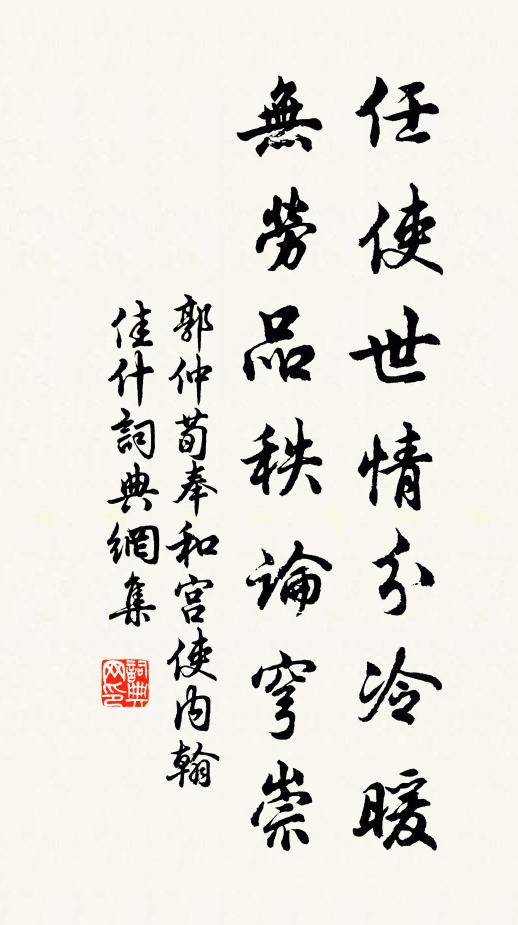 任使世情分冷暖
無勞品秩論穹崇
郭仲荀奉和宮使內翰
佳什詞典網集
詞典网印